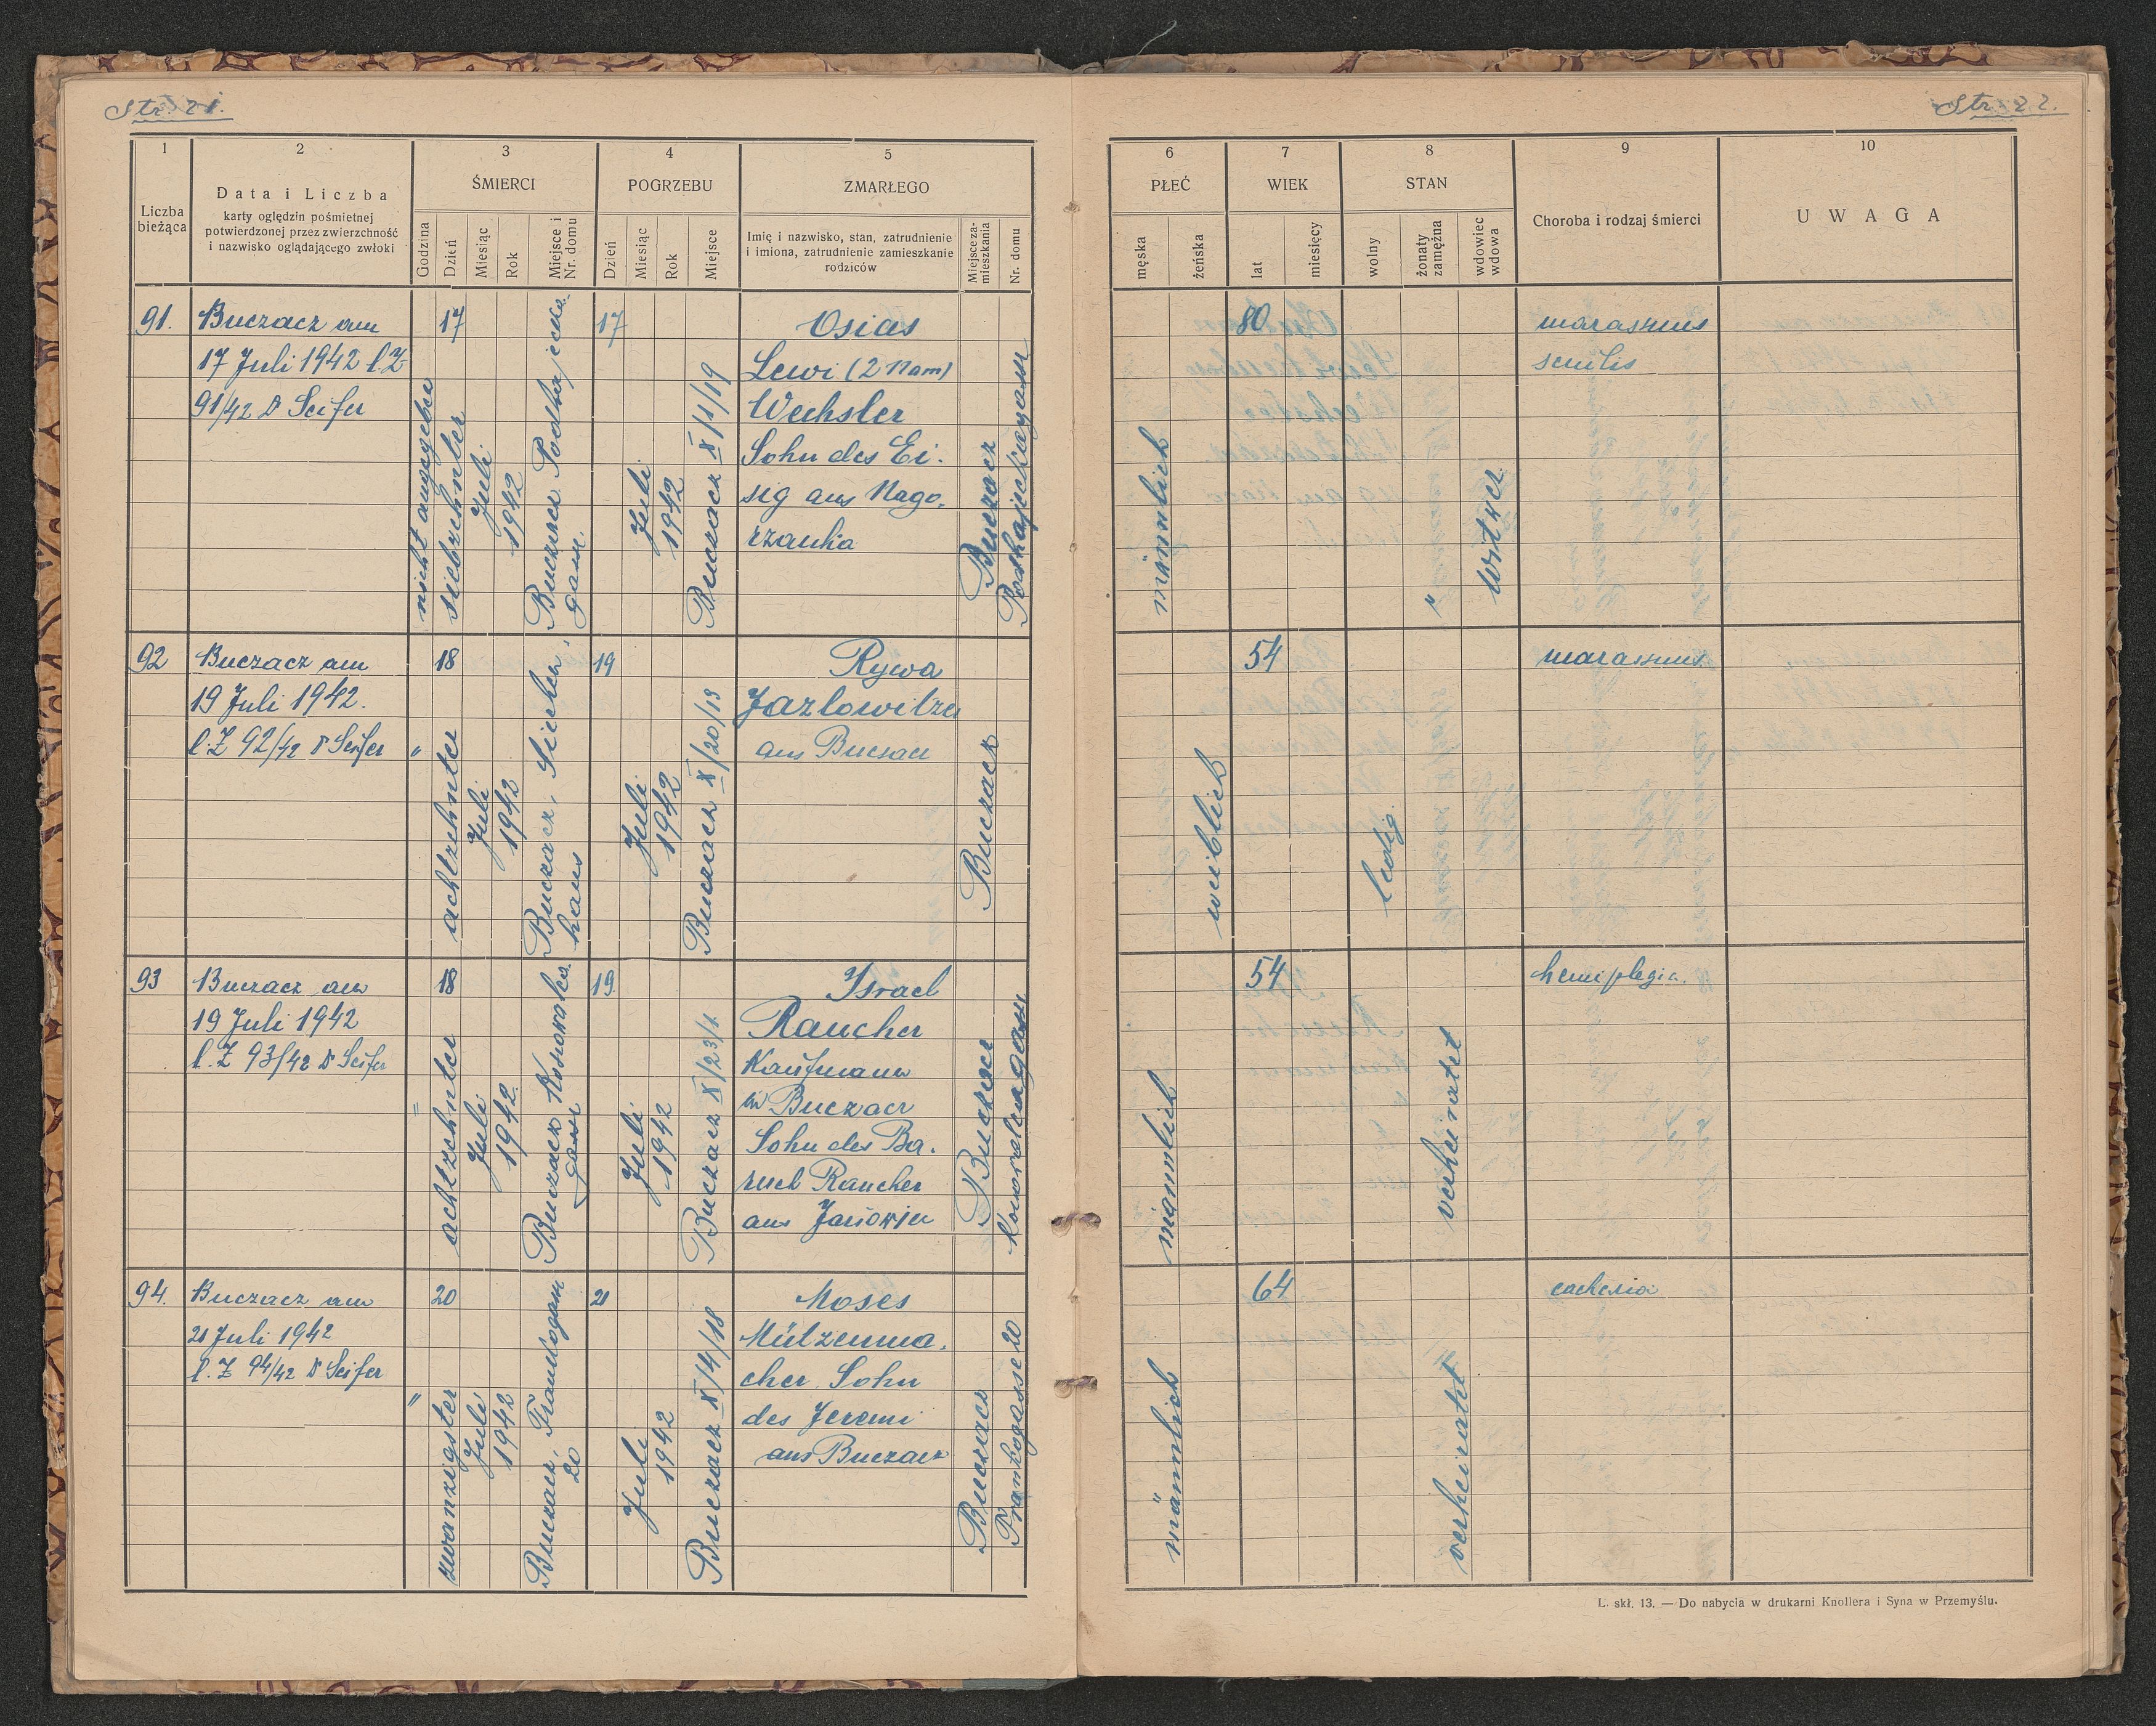 Str. 21.
1
2
3
4
5
Liczba
bieżąca
Data i Liczba
karty oględzin pośmietnej
potwierdzonej przez zwierzchność
i nazwisko oglądającego zwłoki
ŚMIERCI
Godzina
Dzień
Miesiąc
Rok
Miejsce i
Nr. domu
POGRZEBU
Dzień
Miesiąc
Rok
Miejsce
ZMARŁEGO
Imię i nazwisko, stan, zatrudnienie
i imiona, zatrudnienie zamieszkanie
rodziców
Miejsce za-
mieszkania
Nr. domu
91.
Buczacz am
17 Juli 1942 l.Z
91/42 Dr Seifer
nicht angegeben
17
siebzehnter
Juli
1942
Buczacz Podhajecka
gasse.
17
Juli
1942
Buczacz X/1/19
Osias
Lewi (2 Nam)
Wechsler
Sohn des Ei.
sig aus Nago.
rzanka
Buczacz
Podhajeckagasse
92
Buczacz am
19 Juli 1942.
l.Z 92/42 Dr Seifer
"
18
achtzehnter
Juli
1942
Buczacz, Siechen,
haus
19
Juli
1942
Buczacz X/20/19
Rywa
Jazlowitzer
aus
Buczacz
93
Buczacz am
19 Juli 1942
l.Z 93/42 Dr Seifer
"
18
achtzehnter
Juli
1942.
Buczacz
gasse
19.
Juli
1942
Buczacz X/23/1.
Israel
Raucher
Kaufmann
in Buczacz
Sohn des Ba.
ruch Raucher
aus
Buczacz
94.
Buczacz am
21 Juli 1942
l.Z 94/42 Dr Seifer
"
20
zwanzigster
Juli
1942
Buczacz,
20
21
Juli
1942
Buczacz X/4/18
Moses
Mützenma.
cher Sohn
des Jeremi
aus Buczacz
Buczacz
20
Str. 22.
6
7
8
9
10
PŁEĆ
męska
żeńska
WIEK
lat
miesięcy
STAN
wolny
żonaty
zamężna
wdowiec
wdowa
Choroba i rodzaj śmierci
UWAGA
männlich
80
"
Witwer
marasmus
senilis
weiblich
54
ledig
marasmus
männlich
54
verheiratet
hemiplegia.
männlich
64
verheiratet
cachexia
L. skł. 13. — Do nabycia w drukarni Knollera i Syna w Przemyślu.